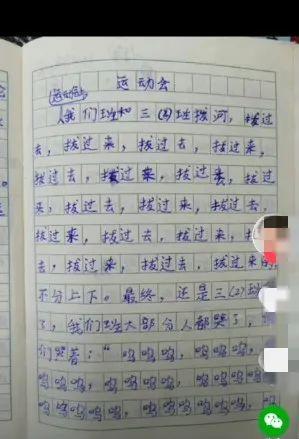 运动会
运动会
我们班和三(2)班拔河，拔过
去，拔过来，拔过去，拔过来，
拔过去，拔过来，拔过去，拔过
来，拔过去，拔过来，拔过去，
拔过来，拔过去，拔过来，
去，拔过来，拔过去，拔过来的
不分上下。最终，还是三(2)班
了，我们班大部分人都哭了，
们哭着："呜呜呜，呜呜呜，
呜呜呜，呜呜呜，呜呜呜，
呜呜呜呜，呜呜呜，呜呜